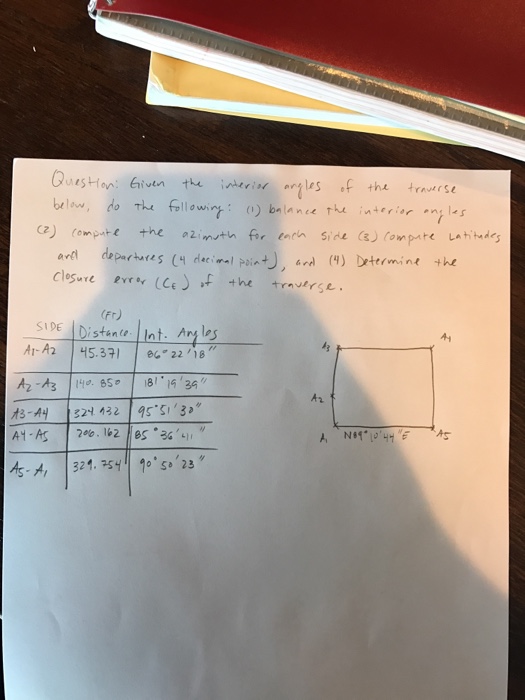 Question: Given the interior angles of the traverse
below, do the following: (1) balance the interior angles
(2) compute the azimuth for each side (3) Compute Latitudes
and departures (4 decimal point), and (4) Determine the
closure error (CE) of the traverse.
(FT)
SIDE Distance Int. Angles
A1-A2 45.371 86° 22' 18"
A2-A3 140.850 181° 19' 39"
A3-A4 95° 51' 30"
A4-A5 206.162 85° 36' 41"
A5-A1 329.754 90° 50' 23"
A3 A4
A2
A N89° 10' 44" E A5